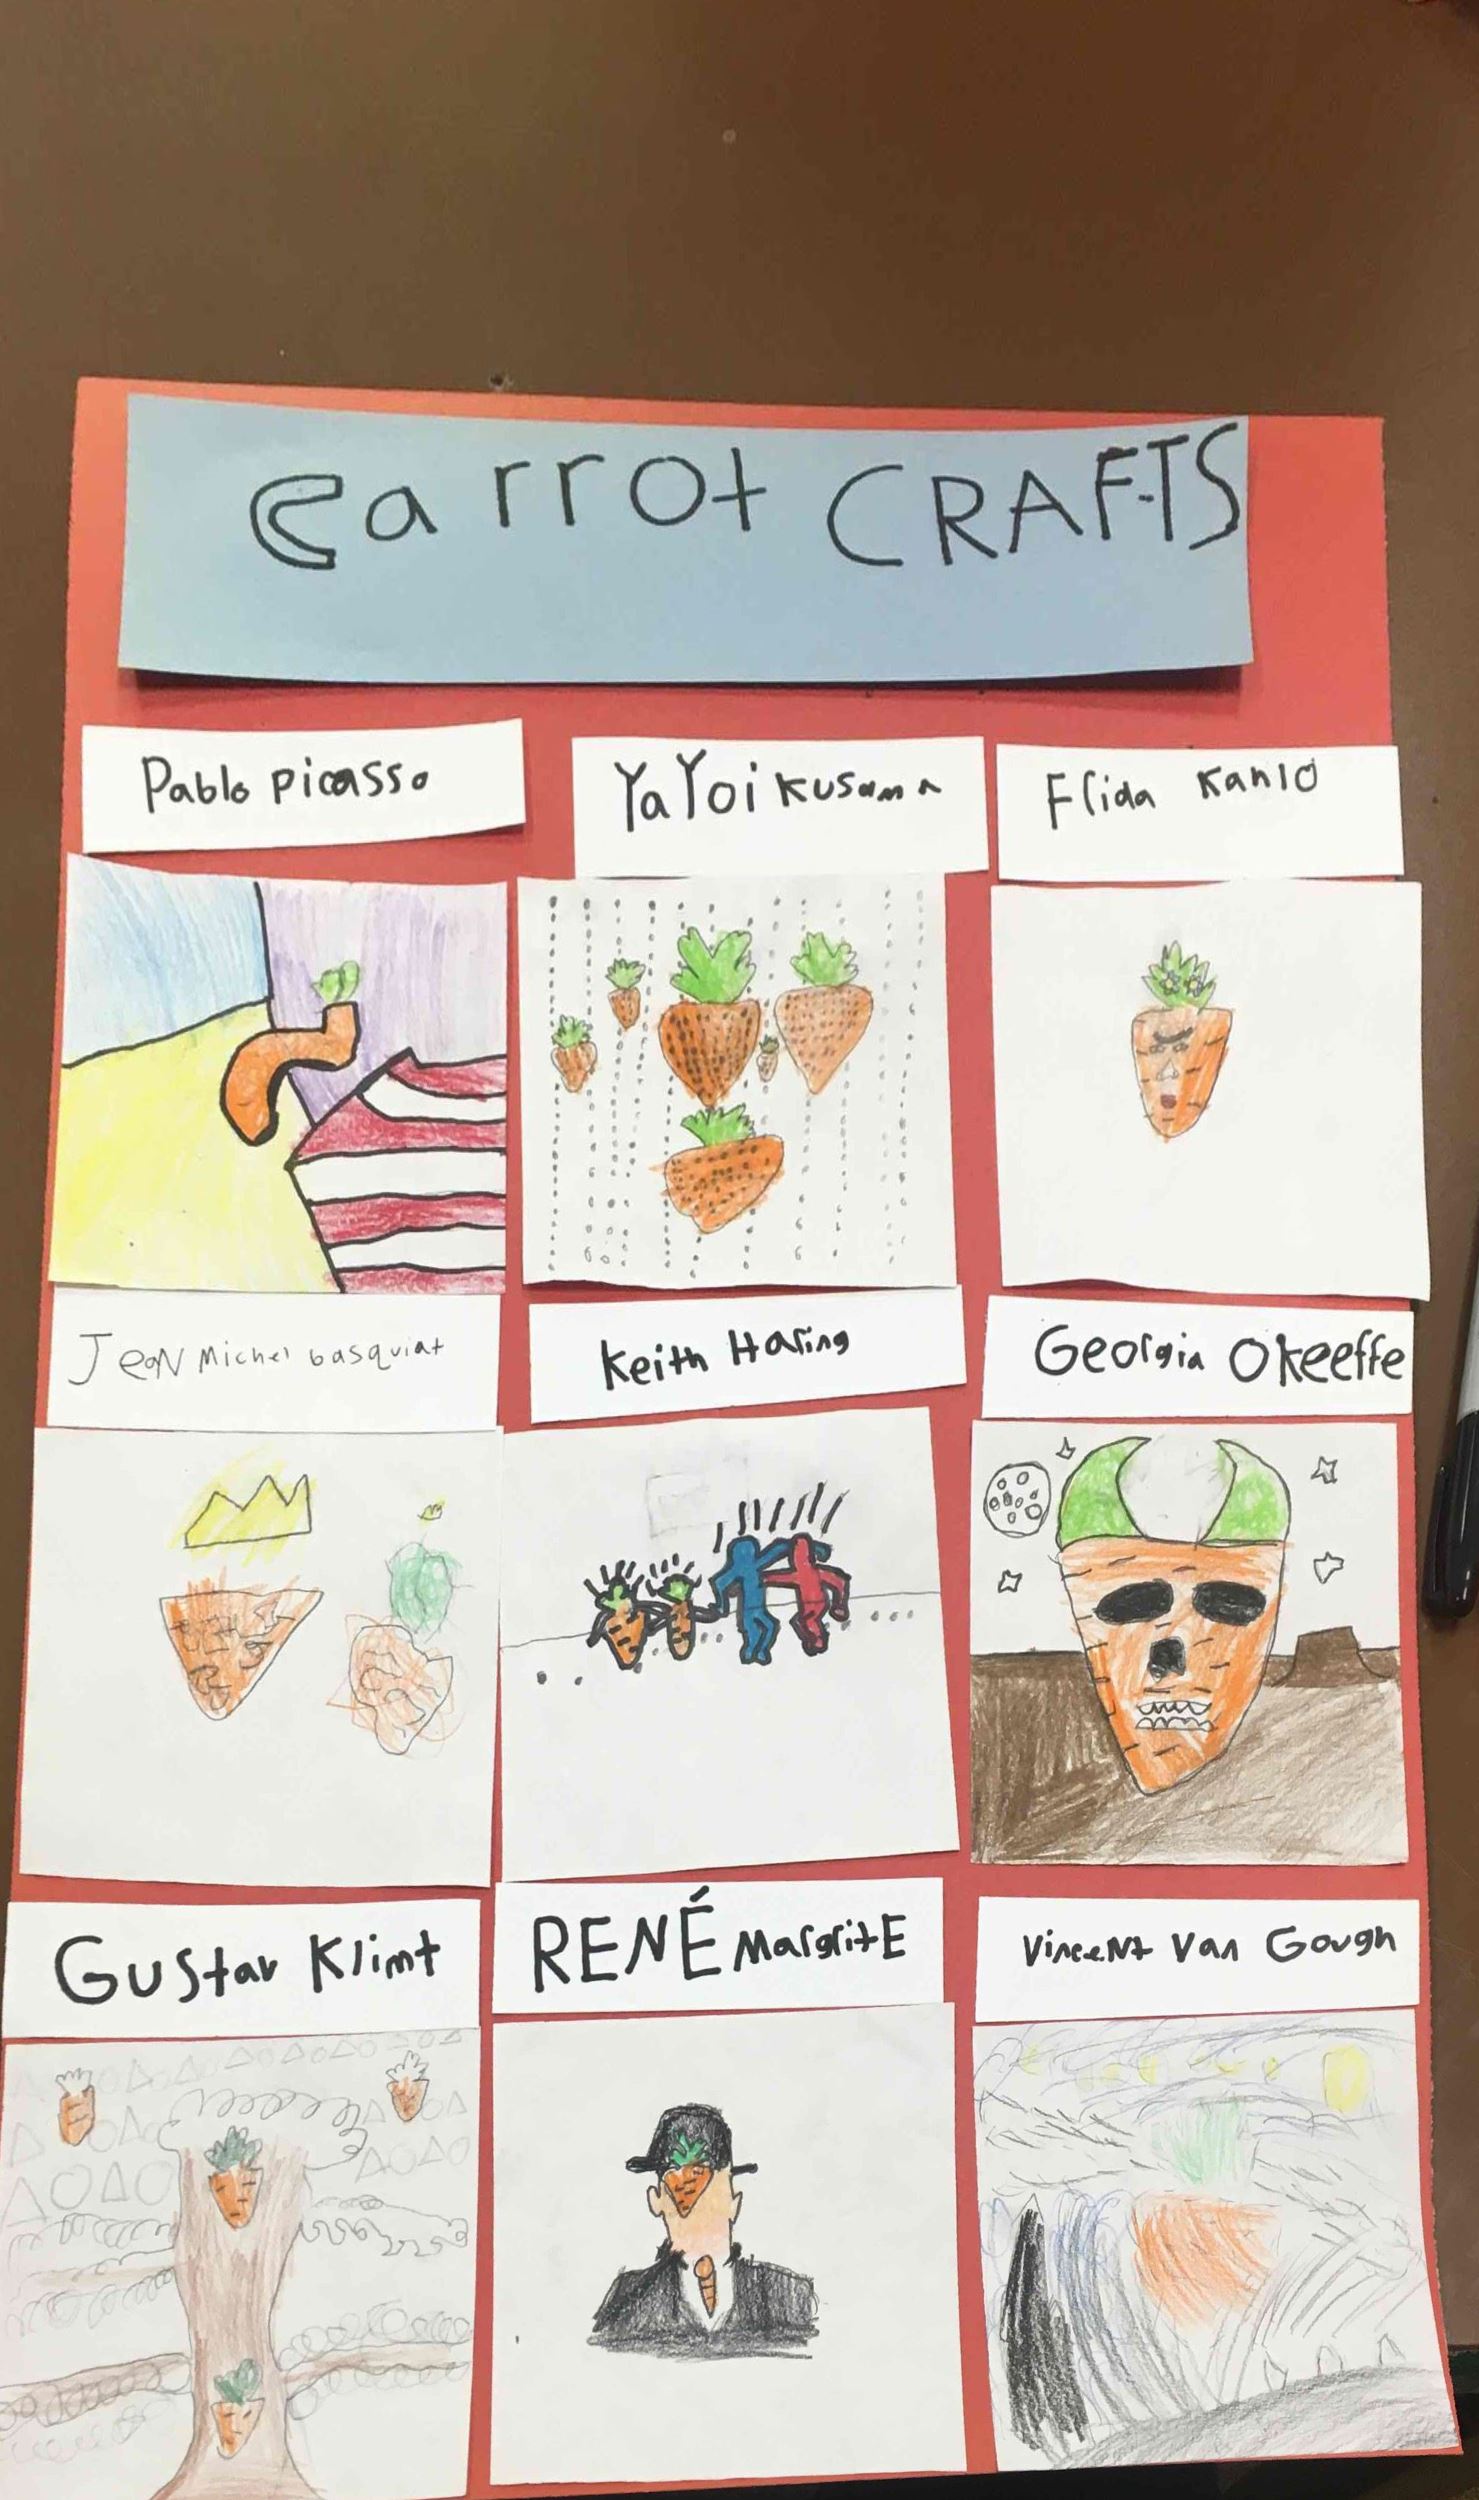 Carrot CRAFTS
Pablo Picasso
YaYoi Kusama
Frida Kahlo
Jean Michel basquiat
Keith Haring
Georgia Okeeffe
Gustav Klimt
RENÉ MargritE
Vincent Van Gough